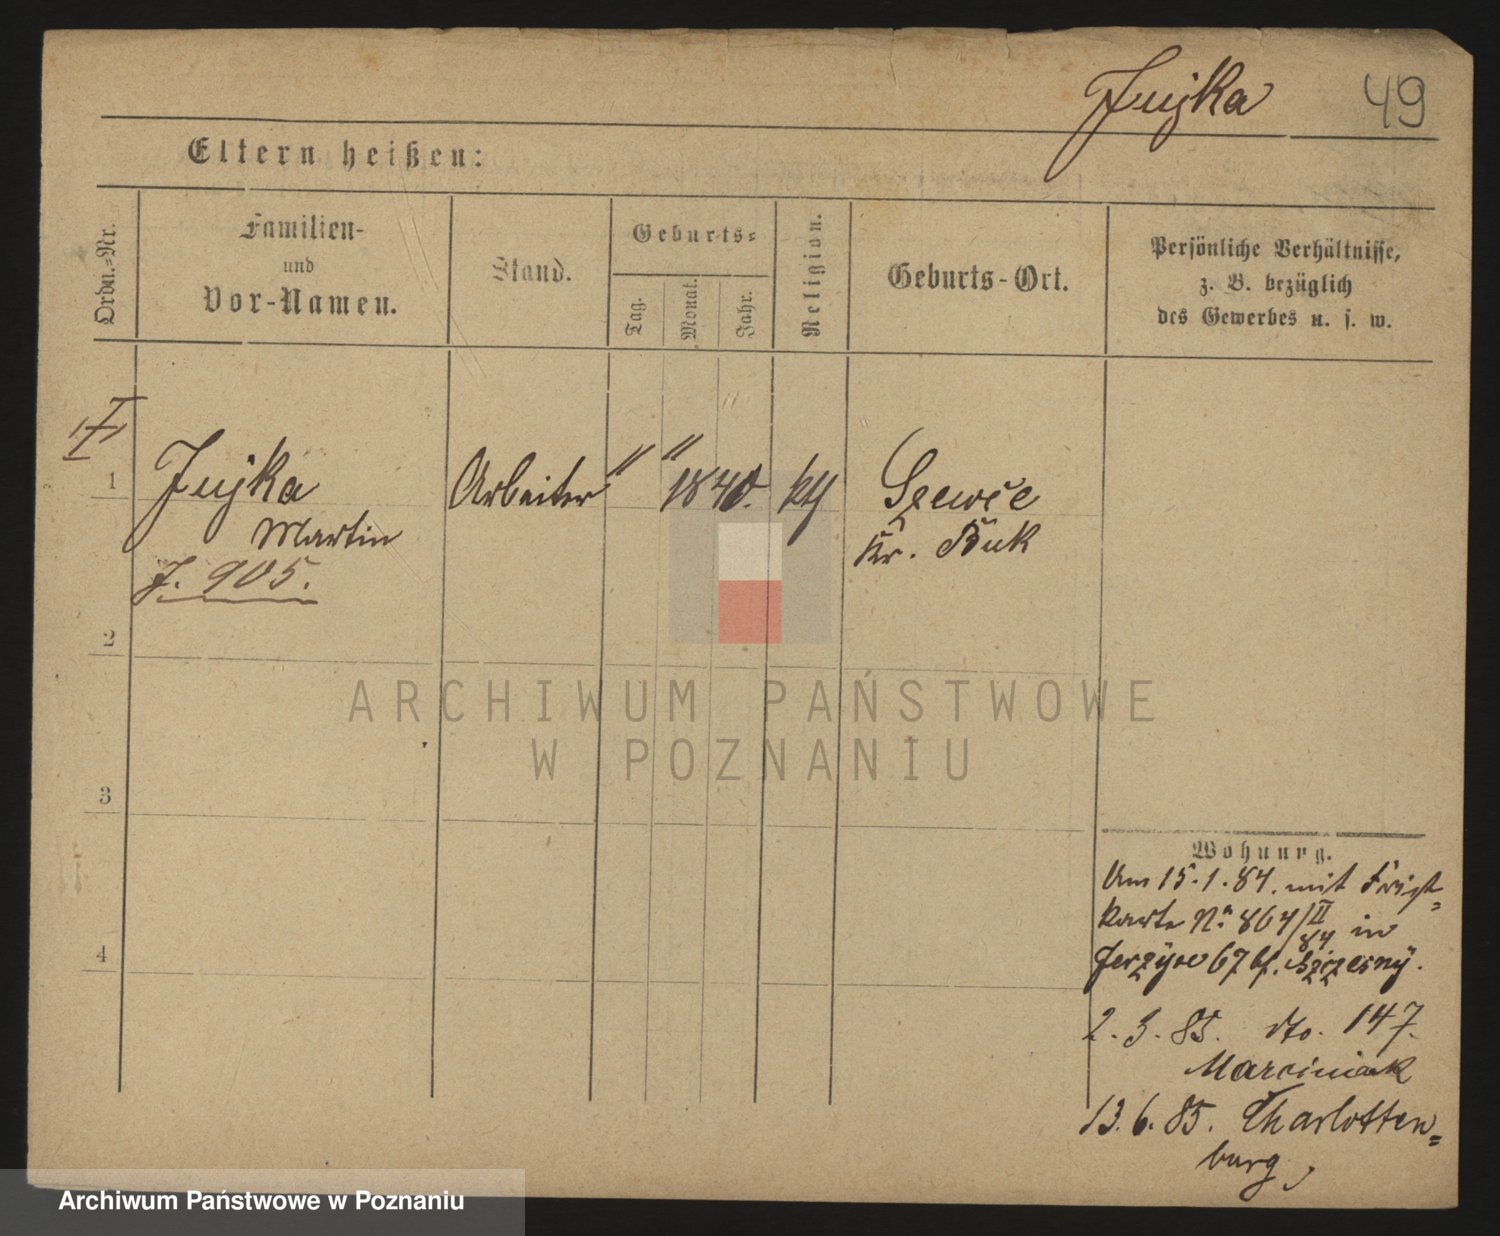 Jujka 49
Eltern heißen:
Ordn.-Nr.
Familien-
und
Vor-Namen.
Stand.
Geburts-
Tag.
Monat.
Jahr.
Religion.
Geburts-Ort.
Persönliche Verhältnisse,
z. B. bezüglich
des Gewerbes u. s. w.
I
1 Jujka Arbeiter " " 1840. kth Szewce
Martin Kr. Buk
J. 905.
2
3
4
ARCHIWUM PAŃSTWOWE
W POZNANIU
Wohnung.
Am 15.1.84. mit Frist-
karte No. 864/II 84 in
Jerzyce 67 bf. Szczesny.
2.3.85. dto. 147.
Marciniak
13.6.85. Charlotten-
burg,
Archiwum Państwowe w Poznaniu